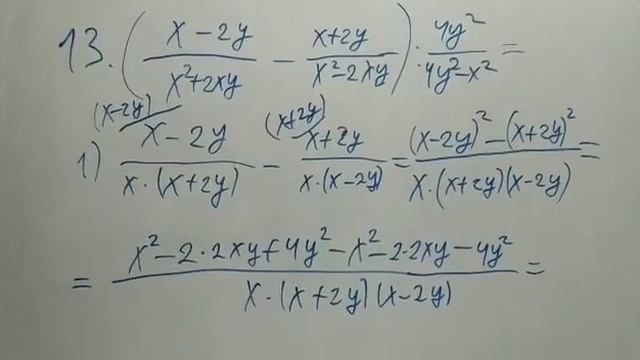 13. ( (x - 2y)/(x² + 2xy) - (x+2y)/(x² - 2xy) ) · 4y²/(4y² - x²) =
1) (x-2y)/ (x - 2y)/(x · (x+2y)) - (x+2y)/ (x+2y)/(x · (x-2y)) = ((x-2y)² - (x+2y)²)/(x · (x+2y)(x-2y)) =
= (x² - 2 · 2xy + 4y² - x² - 2 · 2xy - 4y²)/(x · (x + 2y)(x - 2y)) =